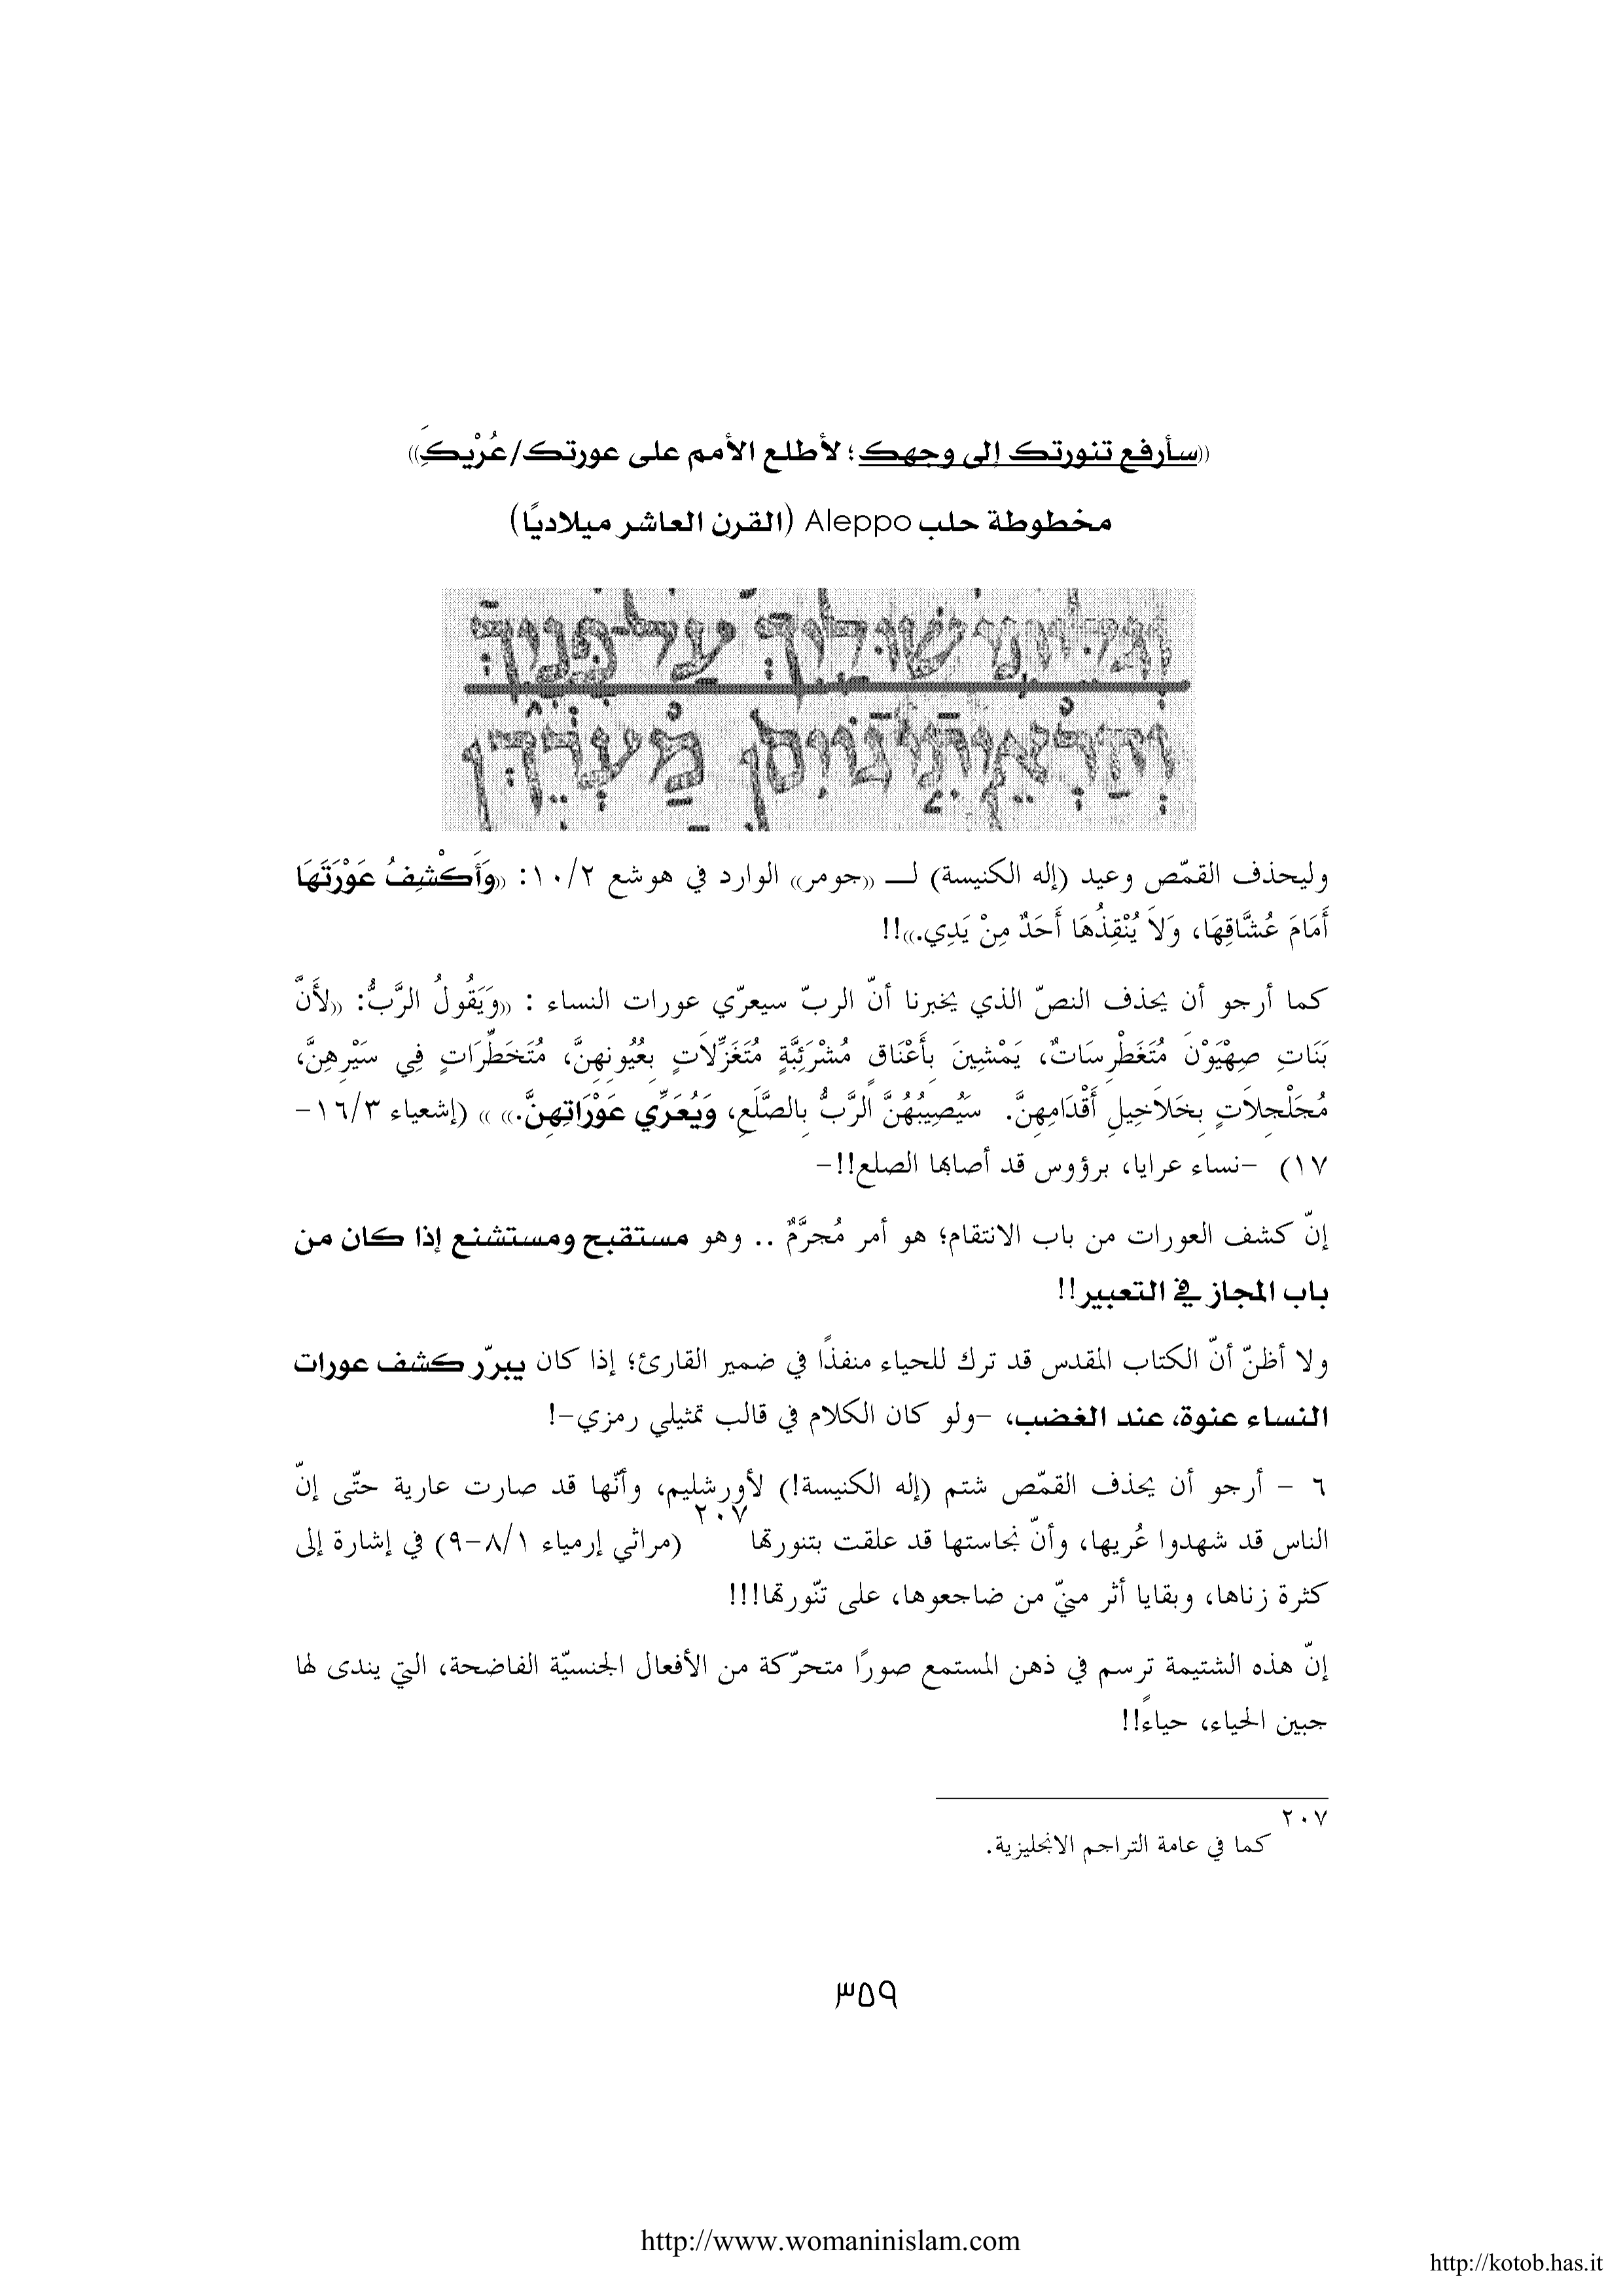 «سأرفع تنورتك إلى وجهك؛ لأطلع الأمم على عورتك/عُرْيِكَ»
مخطوطة حلب Aleppo (القرن العاشر ميلاديًا)
וגליתי שוליך על פניך
והראיתי גוים מערך
وليحذف القمّص وعيد (إله الكنيسة) لـ «جومر» الوارد في هوشع ١٠/٢: «وَأَكْشِفُ عَوْرَتَهَا
أَمَامَ عُشَّاقِهَا، وَلاَ يُنْقِذُهَا أَحَدٌ مِنْ يَدِي.»!!
كما أرجو أن يحذف النصّ الذي يخبرنا أنّ الربّ سيعرّي عورات النساء : «وَيَقُولُ الرَّبُّ: «لأَنَّ
بَنَاتِ صِهْيَوْنَ مُتَغَطْرِسَاتٌ، يَمْشِينَ بِأَعْنَاقٍ مُشْرَئِبَّةٍ مُتَغَزِّلاَتٍ بِعُيُونِهِنَّ، مُتَخَطِّرَاتٍ فِي سَيْرِهِنَّ،
مُجَلْجِلاَتٍ بِخَلاَخِيلِ أَقْدَامِهِنَّ. سَيُصِيبُهُنَّ الرَّبُّ بِالصَّلَعِ، وَيُعَرِّي عَوْرَاتِهِنَّ.» » (إشعياء ١٦/٣-
١٧) -نساء عرايا، برؤوس قد أصابها الصلع!!-
إنّ كشف العورات من باب الانتقام؛ هو أمر مُجرَّمٌ .. وهو مستقبح ومستشنع إذا كان من
باب المجاز في التعبير!!
ولا أظنّ أنّ الكتاب المقدس قد ترك للحياء منفذًا في ضمير القارئ؛ إذا كان يبرّر كشف عورات
النساء عنوة، عند الغضب، -ولو كان الكلام في قالب تمثيلي رمزي-!
٦ - أرجو أن يحذف القمّص شتم (إله الكنيسة!) لأورشليم، وأنّها قد صارت عارية حتّى إنّ
الناس قد شهدوا عُريها، وأنّ نجاستها قد علقت بتنورتها٢٠٧ (مراثي إرمياء ٨/١-٩) في إشارة إلى
كثرة زناها، وبقايا أثر منيّ من ضاجعوها، على تنّورتها!!!
إنّ هذه الشتيمة ترسم في ذهن المستمع صورًا متحرّكة من الأفعال الجنسيّة الفاضحة، التي يندى لها
جبين الحياء، حياءً!!
٢٠٧ كما في عامة التراجم الانجليزية.
٣٥٩
http://www.womaninislam.com
http://kotob.has.it